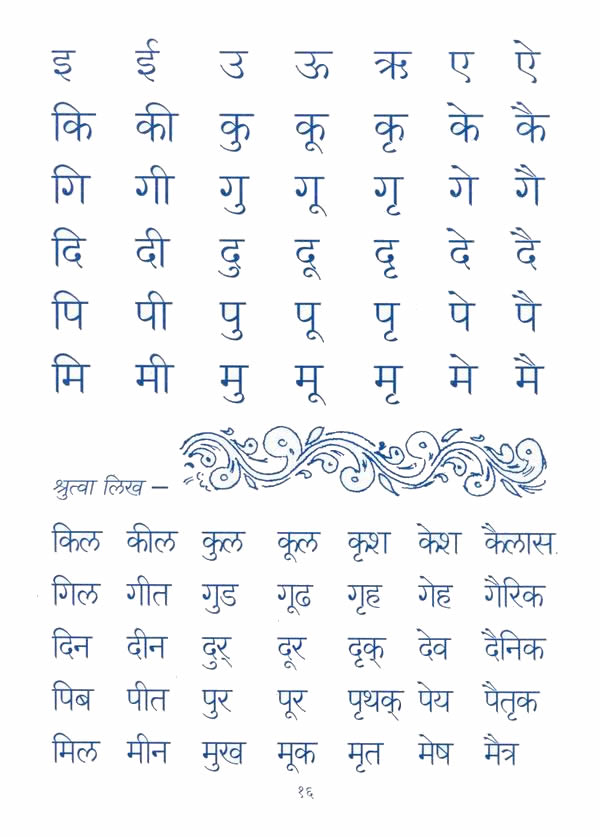 इ ई उ ऊ ऋ ए ऐ
कि की कु कू कृ के कै
गि गी गु गू गृ गे गै
दि दी दु दू दृ दे दै
पि पी पु पू पृ पे पै
मि मी मु मू मृ मे मै
श्रुत्वा लिख –
किल कील कुल कूल कृश केश कैलास.
गिल गीत गुड गूढ गृह गेह गैरिक
दिन दीन दुर् दूर दृक् देव दैनिक
पिब पीत पुर पूर पृथक् पेय पैतृक
मिल मीन मुख मूक मृत मेष मैत्र
१६